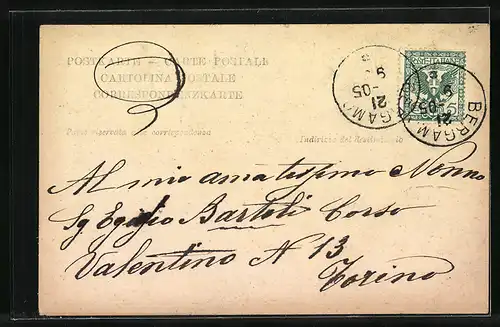 POSTKARTE – CARTE POSTALE
CARTOLINA POSTALE
CORRESPONDENZKARTE
Parte riservata alla corrispondenza
Indirizzo del Destinatario
BERGAMO
21
9
-05
BERGAMO
21
9
-05
5
Al mio amatissimo Nonno
Sg Egifio Bartoli Corso
Valentino N 13
Torino